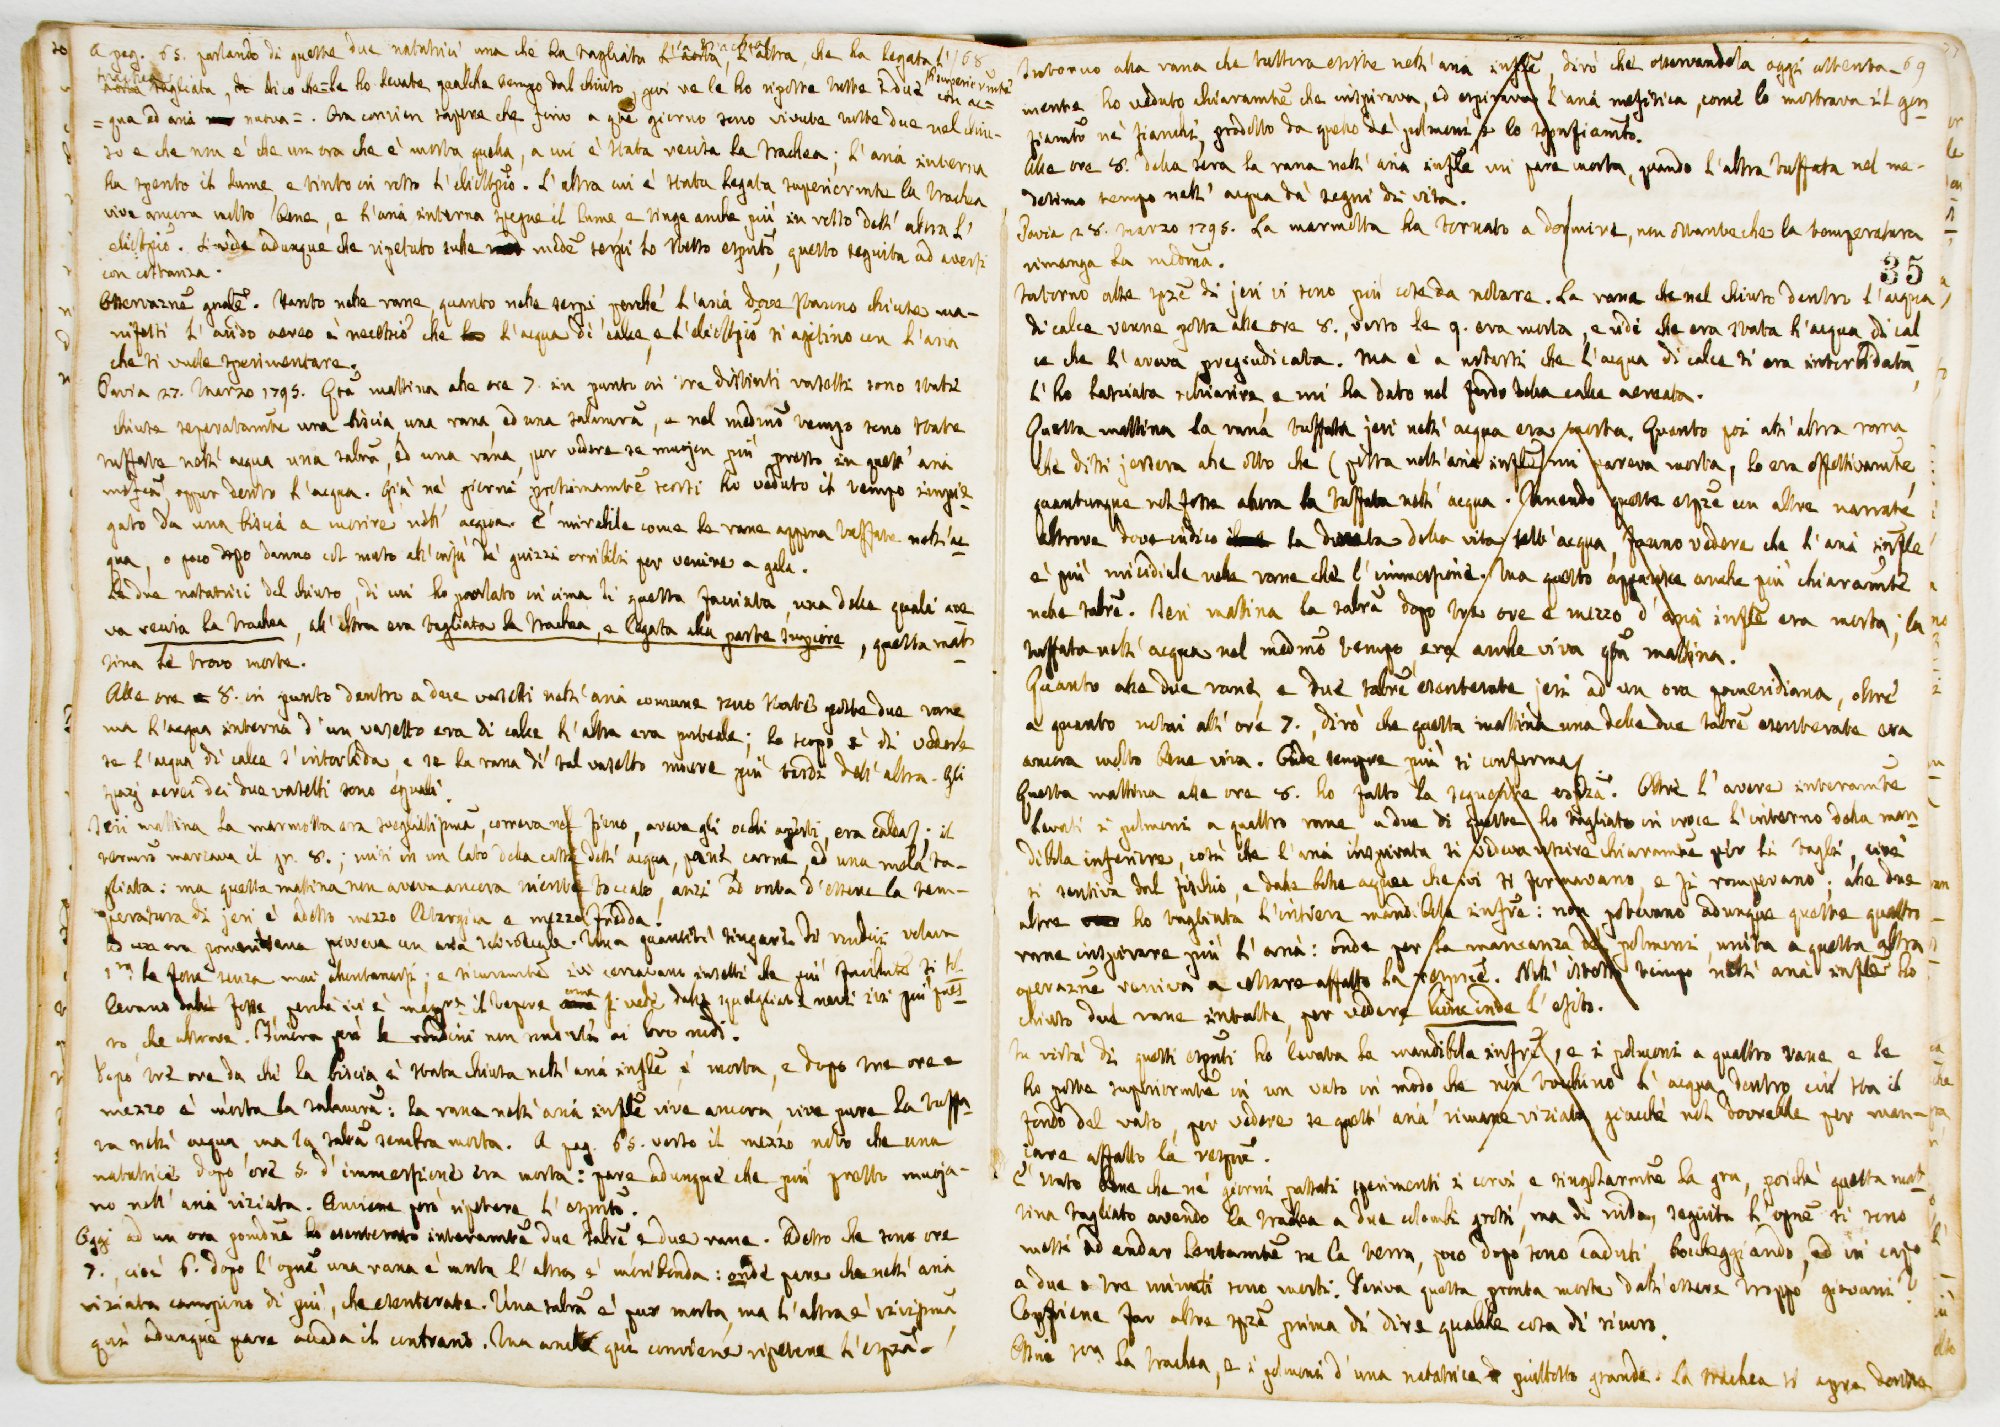 A pag. 65. parlando di queste due natatrici una che ha tagliata l'aorta, l'altra, che ha legata l' 68
tagliata, dico che = le ho levate qualche tempo dal chiuso, poi ve le ho riposte tutte e due
= qua ed aria nuova =. Ora convien sapere che fino a questo giorno sono vivute tutte due nel chiu-
so e che non è che un ora che è morta quella, a cui è stata recisa la trachea; l'aria interna
ha spento il lume e tinto in rosso l'eliotropio. L'altra cui è stata legata superiormte la trachea
vive ancora molto bene, e l'aria interna spegne il lume e tinge anche più in rosso dell'altra l'
eliotropio. Si vede adunque che ripetuto sulle medē serpi lo stesso esperimto, questo seguita ad aversi
con costanza.
Osservaznē gnālē. Tanto nelle rane, quanto nelle serpi perchè l'aria dove stanno chiuse ma-
nifesti l'acido aereo è necessario che l'acqua di calce, e l'eliotropio si agitino con l'aria
che si vuole sperimentare.
Pavia 27. Marzo 1795. Qta mattina alle ore 7. in punto in tre distinti vaselli sono state
chiuse separatamte una biscia, una rana, ed una salamdrā, e nel medmō tempo sono state
tuffate nell'acqua una salamdrā, ed una rana, per vedere se muojon più presto in quest'aria
mofetica, oppur dentro l'acqua. Già ne' giorni prossimamte scorsi ho veduto il tempo impie-
gato da una biscia a morire nell'acqua. È mirabile come le rane appena tuffate nell'ac-
qua, o poco dopo danno col muso all'insù de' guizzi orribili per venire a galla.
Le due natatrici del chiuso, di cui ho parlato in cima di questa facciata, una delle quali ave
va recisa la trachea, all'altra era tagliata la trachea, e legata alla parte supiore, questa mat-
tina le trovo morte.
Alle ore 8. in punto dentro a due vaselli nell'aria comune sono state poste due rane
ma l'acqua interna d'un vasetto era di calce l'altra era puteale; lo scopo è di vedere
se l'acqua di calce s'intorbida, e se la rana di tal vasetto muore più tardi dell'altra. Gli
spazj aerei dei due vaselli sono eguali.
Ieri mattina la marmotta era svegliatissima, correva nel fieno, aveva gli occhi aperti, era calda; il
termro marcava il gr. 8.; misi in un lato della cassa dell'acqua, pane, carne, ed una mela ta-
gliata: ma questa mattina non aveva ancora niente toccato, anzi ad onta d'essere la tem-
peratura di jeri è adesso mezzo letargica e mezzo fredda.
Ad un ora pomeridiana pioveva un aria sciroccale. Una quantità di rondini volava
le fosse senza mai allontanarsi; e sicuramte ivi cercavano insetti che più facilmte si sol-
levano dalle fosse, perchè ivi è magre il vapore, come si vede dallo squagliarsi nevi ivi più pres-
to, che altrove. Finora però le rondini non ai loro nidi.
Dopo tre ore da che la biscia è stata chiusa nell'aria inflē, è morta, e dopo tre ore e
mezzo è morta la salamdrā: la rana nell'aria inflē vive ancora, vive pure la tuffa-
ta nell'acqua, ma la salamdrā sembra morta. A pag. 65. verso il mezzo noto che una
natatrice dopo ore 5. d'immersione era morta: pare adunque che più presto muoja-
no nell'aria viziata. Conviene però ripetere l'esperimto.
Oggi ad un ora pomdnā ho esenterato interamte due salrē e due rane. Adesso che sono ore
7., cioè 6. dopo l'opnē una rana è morta l'altra è moribonda: onde pare che nell'aria
viziata campino di più, che esenterate. Una salrā è pur morta, ma l'altra è vivissimā
quì adunque pare accada il contrario. Ma anche quì conviene ripetere l'esprzā.
Intorno alla rana che tuttora esiste nell'aria inflē, dirò che osservandola oggi attenta- 69
mente ho veduto chiaramte che inspirava, ed espirava l'aria mefitica, come lo mostrava il gon-
fiamto ne' fianchi, prodotto da quello de' polmoni, e lo sgonfiamto.
Alle ore 8. della sera la rana nell'aria inflē mi pare morta, quando l'altra tuffata nel me-
desimo tempo nell'acqua dà segni di vita.
Pavia 28. Marzo 1795. La marmotta ha tornato a dormire, non ostante che la temperatura
rimanga la medma.
35
Intorno alle sprzē di jeri vi sono più cose da notare. La rana che nel chiuso dentro l'acqua
di calce venne posta alle ore 8., verso le 9. era morta, e vidi che era stata l'acqua di cal
ce che l'aveva pregiudicata. Ma è a notarsi che l'acqua di calce si era intorbidata,
l'ho lasciata schiarire, e mi ha dato nel fondo della calce aereata.
Questa mattina la rana tuffata jeri nell'acqua era morta. Quanto poi all'altra rana
che dissi jersera alle otto che (posta nell'aria inflē) mi pareva morta, lo era effettivamte,
quantunque nol fosse allora la tuffata nell'acqua. Unendo queste esprzē con altre narrate
altrove dove indico la durata della vita sott'acqua, fanno vedere che l'aria inflē
è più micidiale nelle rane che l'immersione. Ma questo apparisce anche più chiaramte
nelle salrē. Ieri mattina la salrā dopo tre ore e mezzo d'aria inflē era morta; la
tuffata nell'acqua nel medmō tempo era anche viva qta mattina.
Quanto alle due rane, e due salrē esenterate jeri ad un ora pomeridiana, oltre
a quanto notai all'ore 7., dirò che questa mattina una delle due salrē esenterate era
ancora molto bene viva. Onde sempre più si conferma.
Questa mattina alle ore 8. ho fatto la seguente esprzā. Oltre l'avere interamte
levati i polmoni a quattro rane, a due di queste ho tagliato in croce l'interno della man-
dibola inferiore, così che l'aria inspirata si vedeva uscire chiaramte per li tagli, cioè
si sentiva dal fischio, e dalle bolle acquee che ivi si formavano, e si rompevano: alle due
altre ho tagliata l'intiera mandibola infrē: non potevano adunque queste quattro
rane inspirare più l'aria: onde per la mancanza de' polmoni, unita a questa altra
operaznē veniva a cessare affatto la respnē. Nell'istesso tempo nell'aria inflē ho
chiuso due rane intatte, per vedere hinc inde l'esito.
In virtù di questi esprti ho levata la mandibola infrē, e i polmoni a quattro rane e le
ho poste superiormte in un vaso in modo che non tocchino l'acqua, dentro cui sta il
fondo del vaso, per vedere se quest'aria rimane viziata giacchè nol dovrebbe per man-
care affatto la respnē.
È stato bene che ne' giorni passati sperimenti i corvi, e singolarmte la gru, poichè questa mat-
tina tagliato avendo la trachea a due colombi grossi, ma di nido, seguita l'opnē si sono
messi ad andar lentamte su la terra, poco dopo sono caduti boccheggiando, ed in capo
a due o tre minuti sono morti. Deriva questa pronta morte dall'essere troppo giovani?
Conviene far altre sprzē prima di dire qualche cosa di sicuro.
la trachea, e i polmoni d'una natatrice piuttosto grande. La trachea si apre dentro